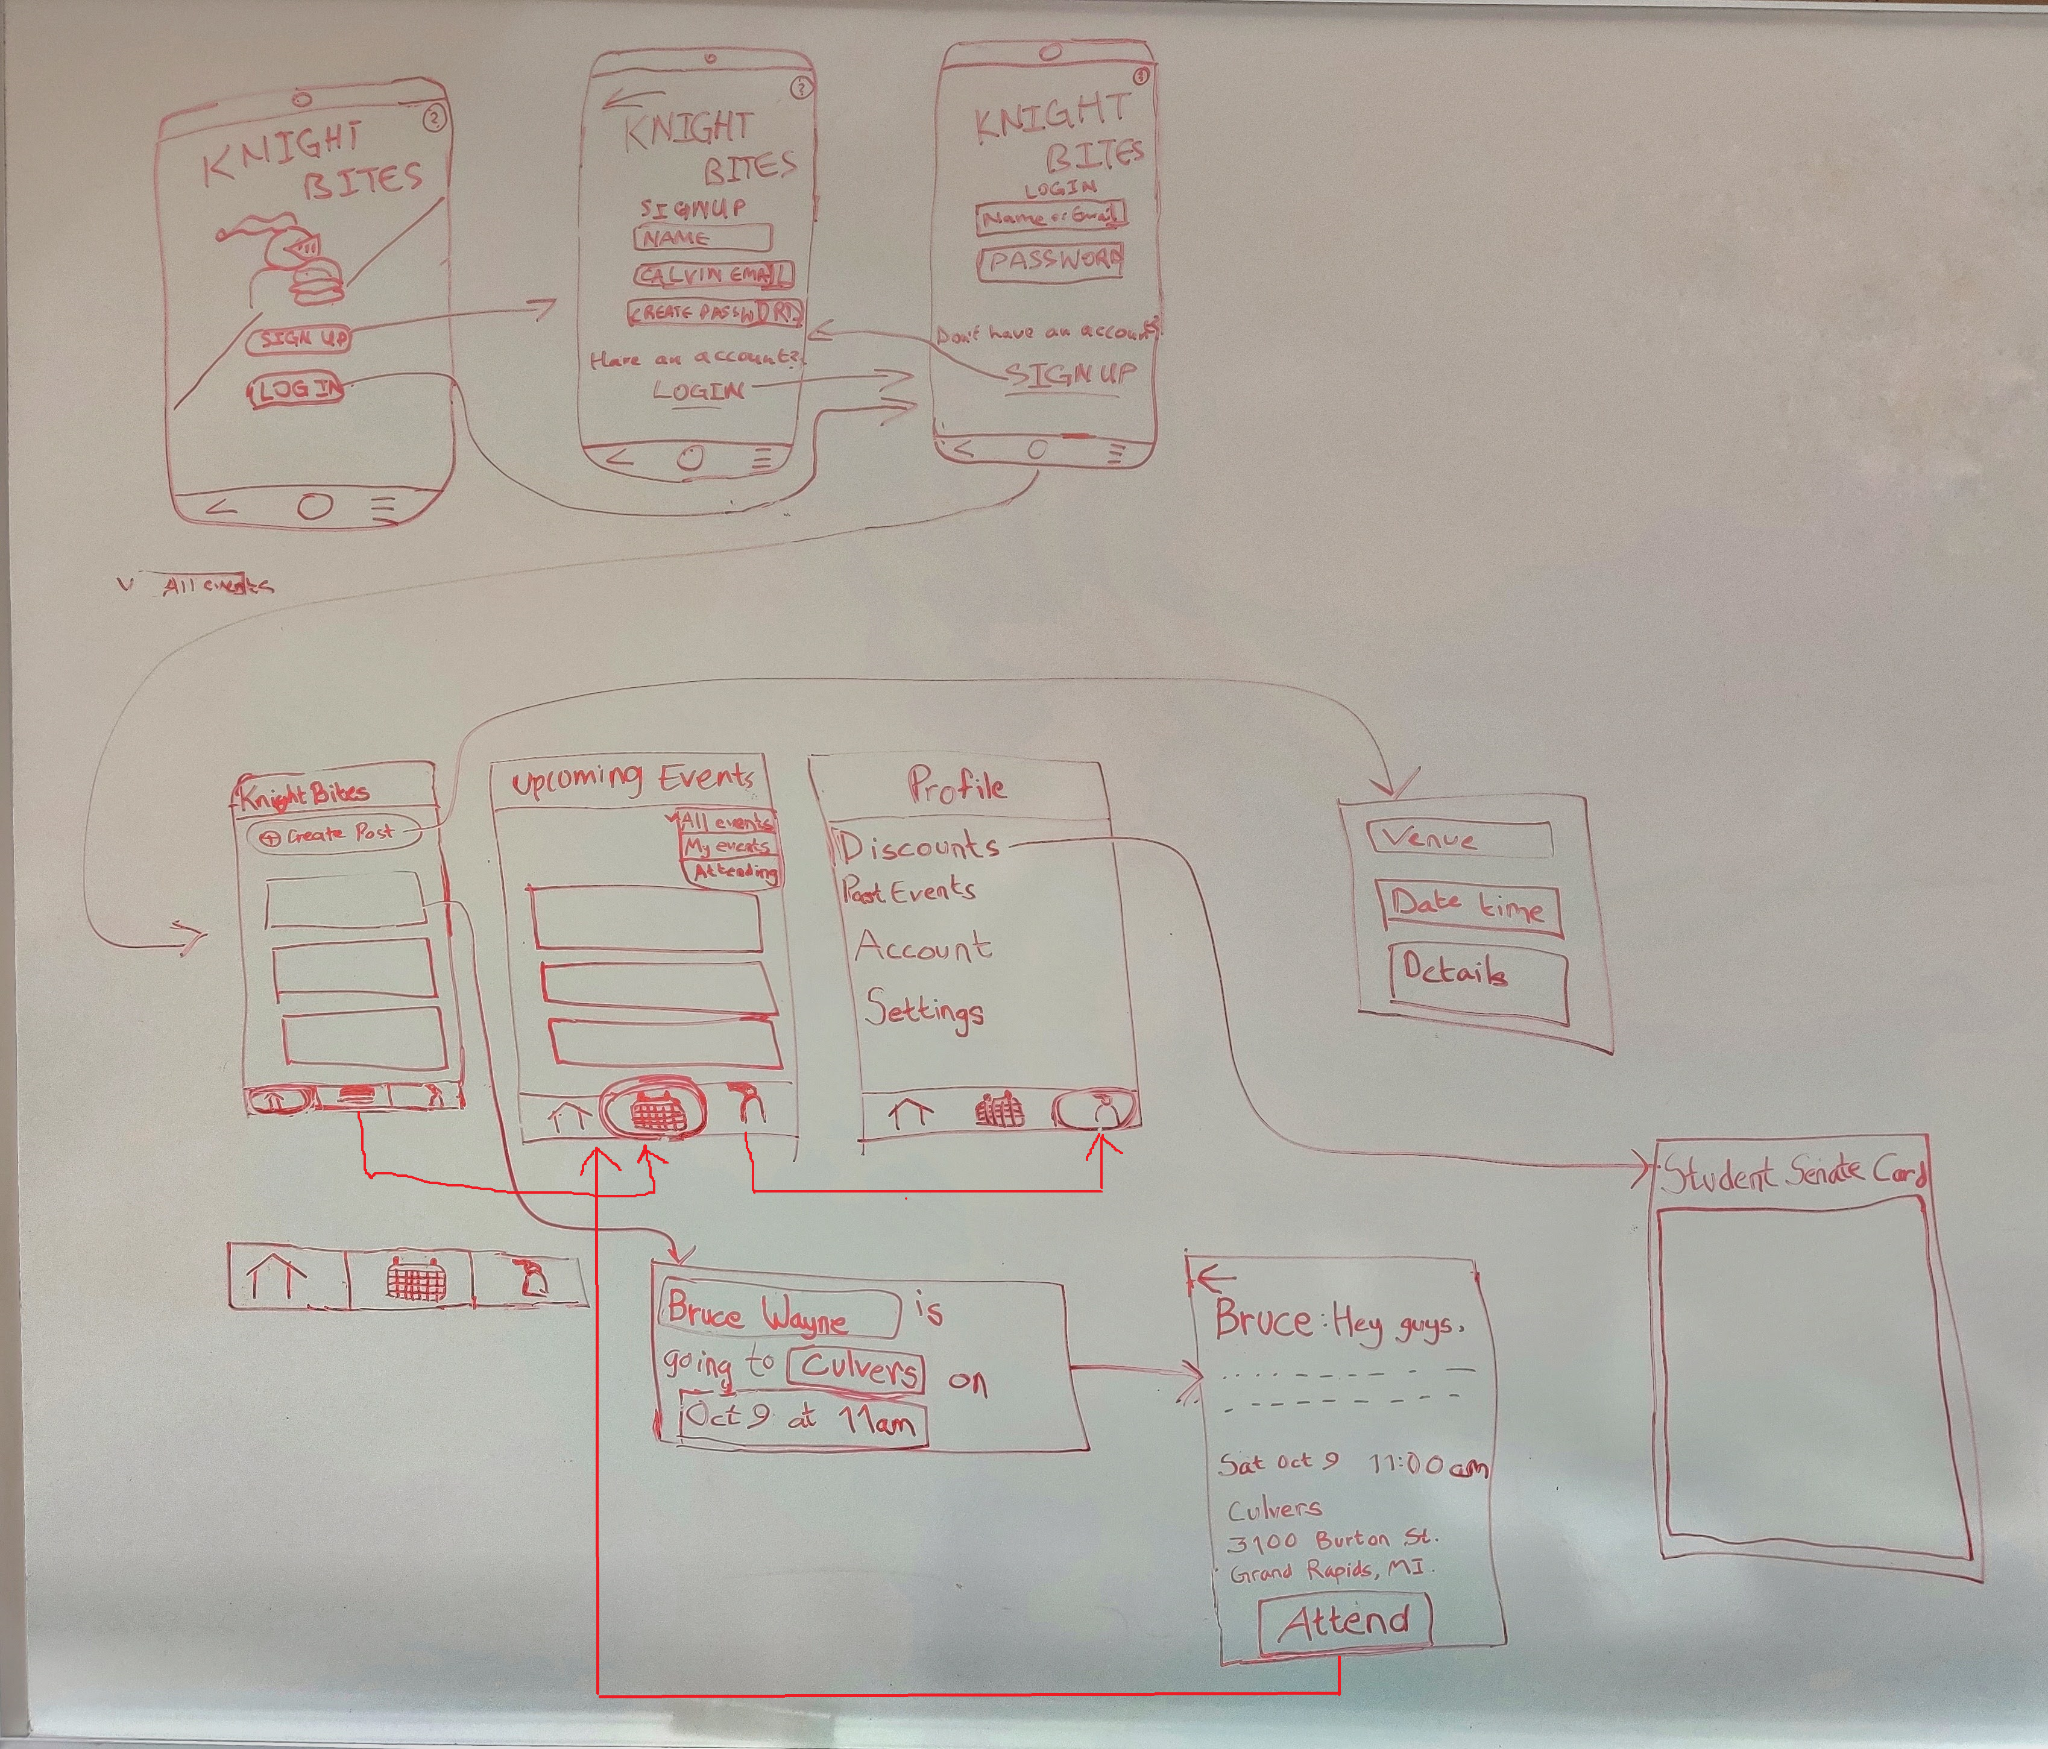 KNIGHT
BITES
SIGN UP
LOG IN
?
KNIGHT
BITES
SIGNUP
NAME
CALVIN EMAIL
CREATE PASSWORD
Have an account?
LOGIN
?
KNIGHT
BITES
LOGIN
Name or Email
PASSWORD
Don't have an account?
SIGN UP
?
All events
Knight Bites
Create Post
Upcoming Events
All events
My events
Attending
Profile
Discounts
Past Events
Account
Settings
Venue
Date time
Details
Student Senate Card
Bruce Wayne is
going to Culvers on
Oct 9 at 11am
Bruce: Hey guys,
Sat Oct 9 11:00 am
Culvers
3100 Burton St.
Grand Rapids, MI.
Attend